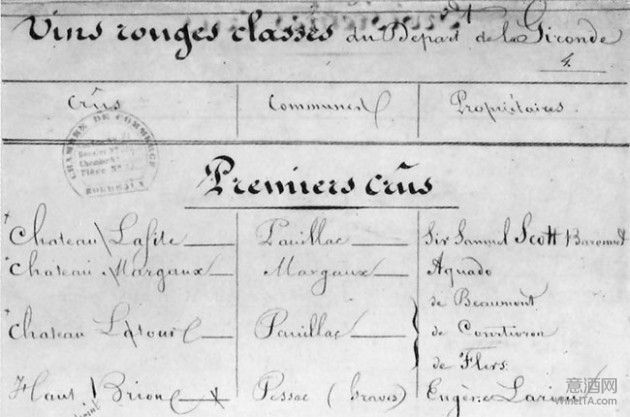 Vins rouges classés du Départ de la Gironde
4.
Crûs Communes Propriétaires
CHAMBRE DE COMMERCE
BORDEAUX
Premiers crûs
Chateau Lafite Pauillac Sir Samuel Scott Baronnet
Chateau Margaux Margaux Aguado
de Beaumont
Chateau Latour Pauillac de Courtivron
de Flers
Haut Brion Pessac (Graves) Eugène Larrieu
意酒网